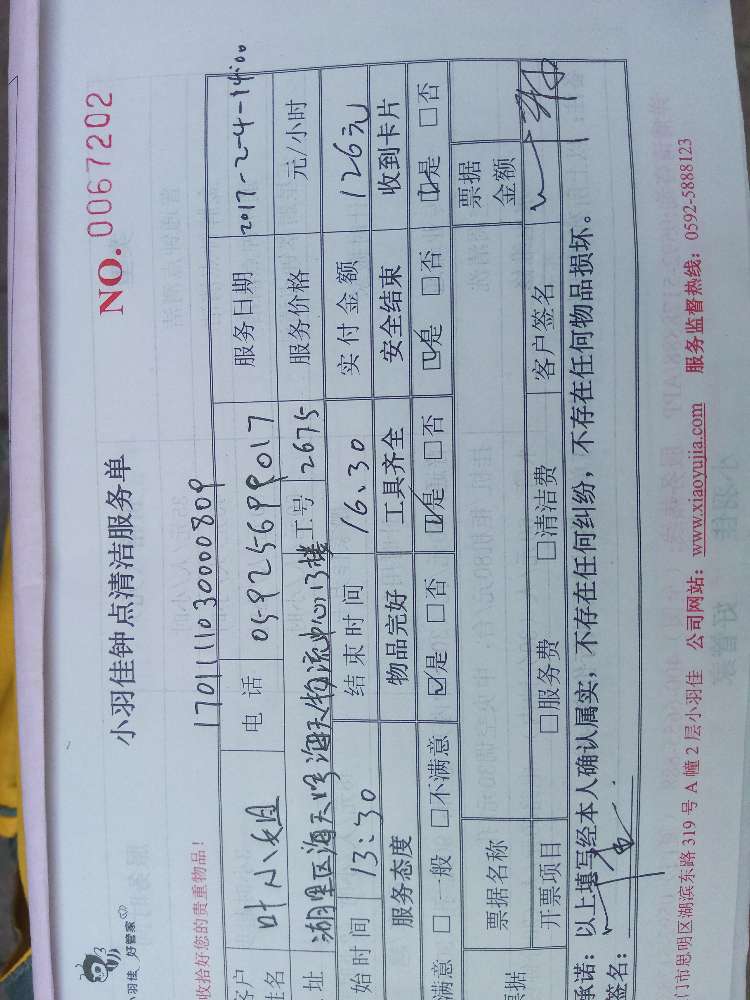 小羽佳 好管家
小羽佳钟点清洁服务单
NO. 0067202
收拾好您的贵重物品!
1701111030000809
客户姓名 叶小姐 电话 05925699017 服务日期 2017-2-4-14:00
址 湖里区海天路海天物流中心13楼 工号 2675 服务价格 元/小时
始时间 13:30 结束时间 16:30 实付金额 126元
服务态度 物品完好 工具齐全 安全结束 收到卡片
满意 □一般 □不满意 ☑是 □否 ☑是 □否 ☑是 □否 ☑是 □否
票据 票据名称 票据金额
开票项目 □服务费 □清洁费 客户签名
承诺:以上填写经本人确认属实,不存在任何纠纷,不存在任何物品损坏。
签名:
门市思明区湖滨东路 319 号 A 幢 2 层小羽佳 公司网站:www.xiaoyujia.com 服务监督热线:0592-5888123